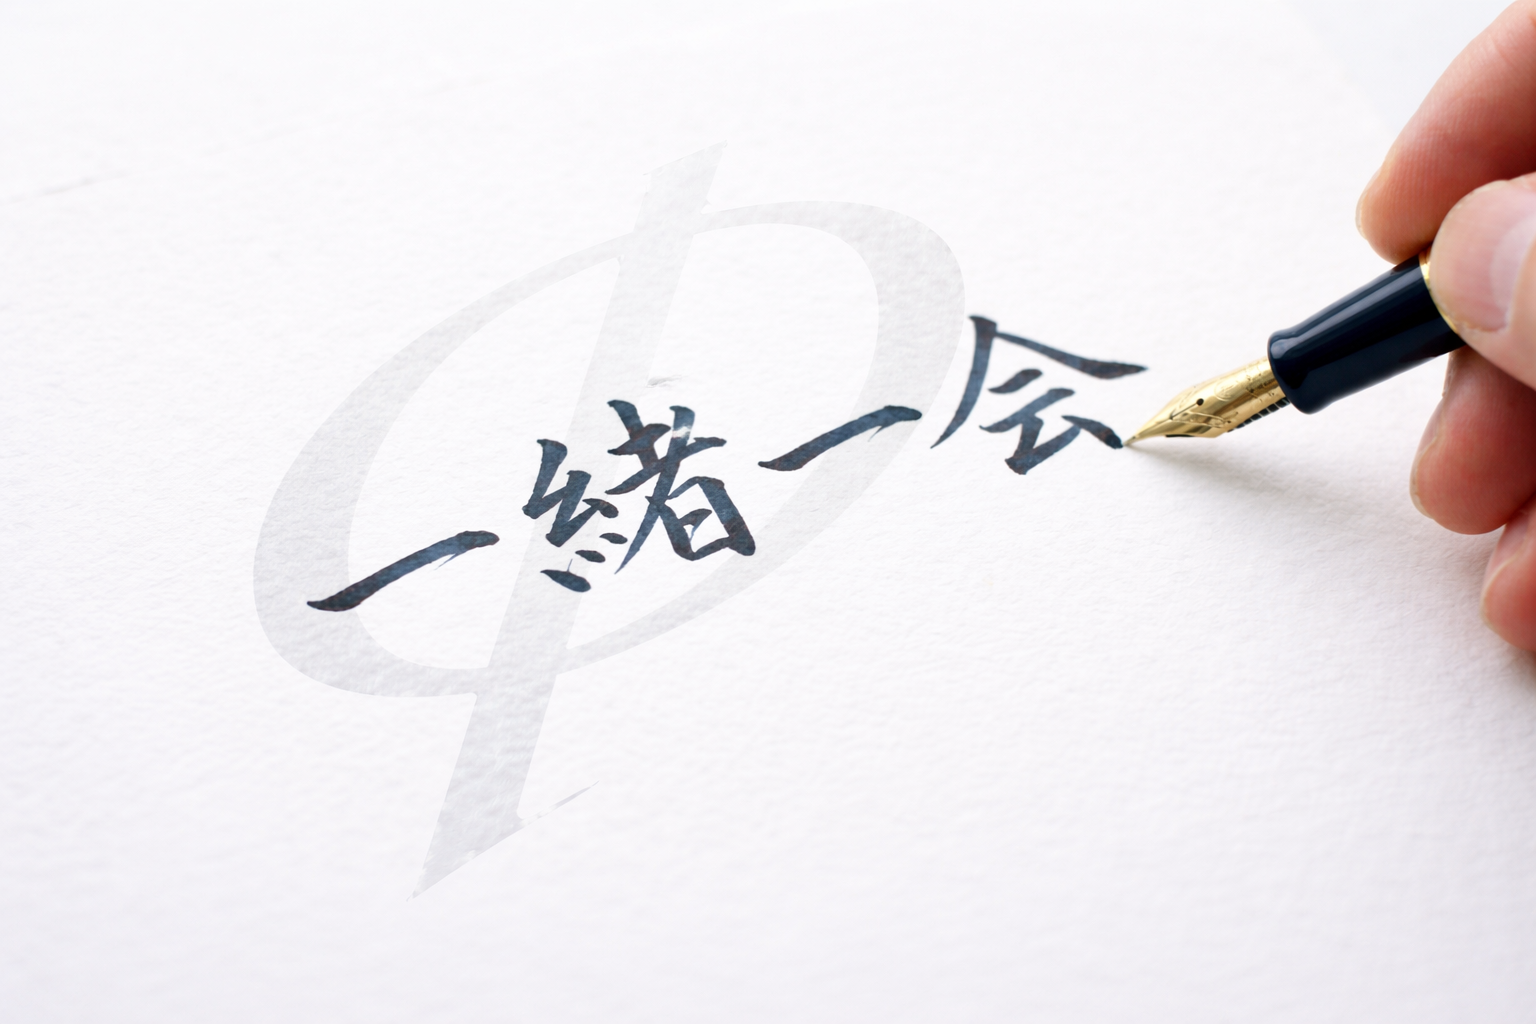 一緒一会